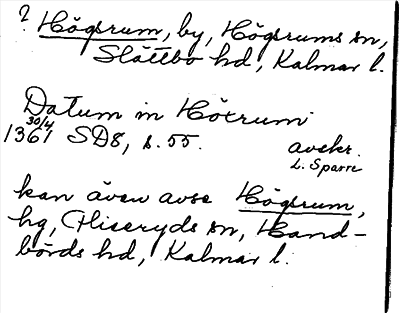 ? Högsrum, by, Högsrums sn,
Slättbo hd, Kalmar l.
Datum in Höcrum
30/4
1361 SD8, s. 55. avskr.
L. Sparre
kan även avse Högsrum,
hg, Fliseryds sn, Hand-
börds hd, Kalmar l.